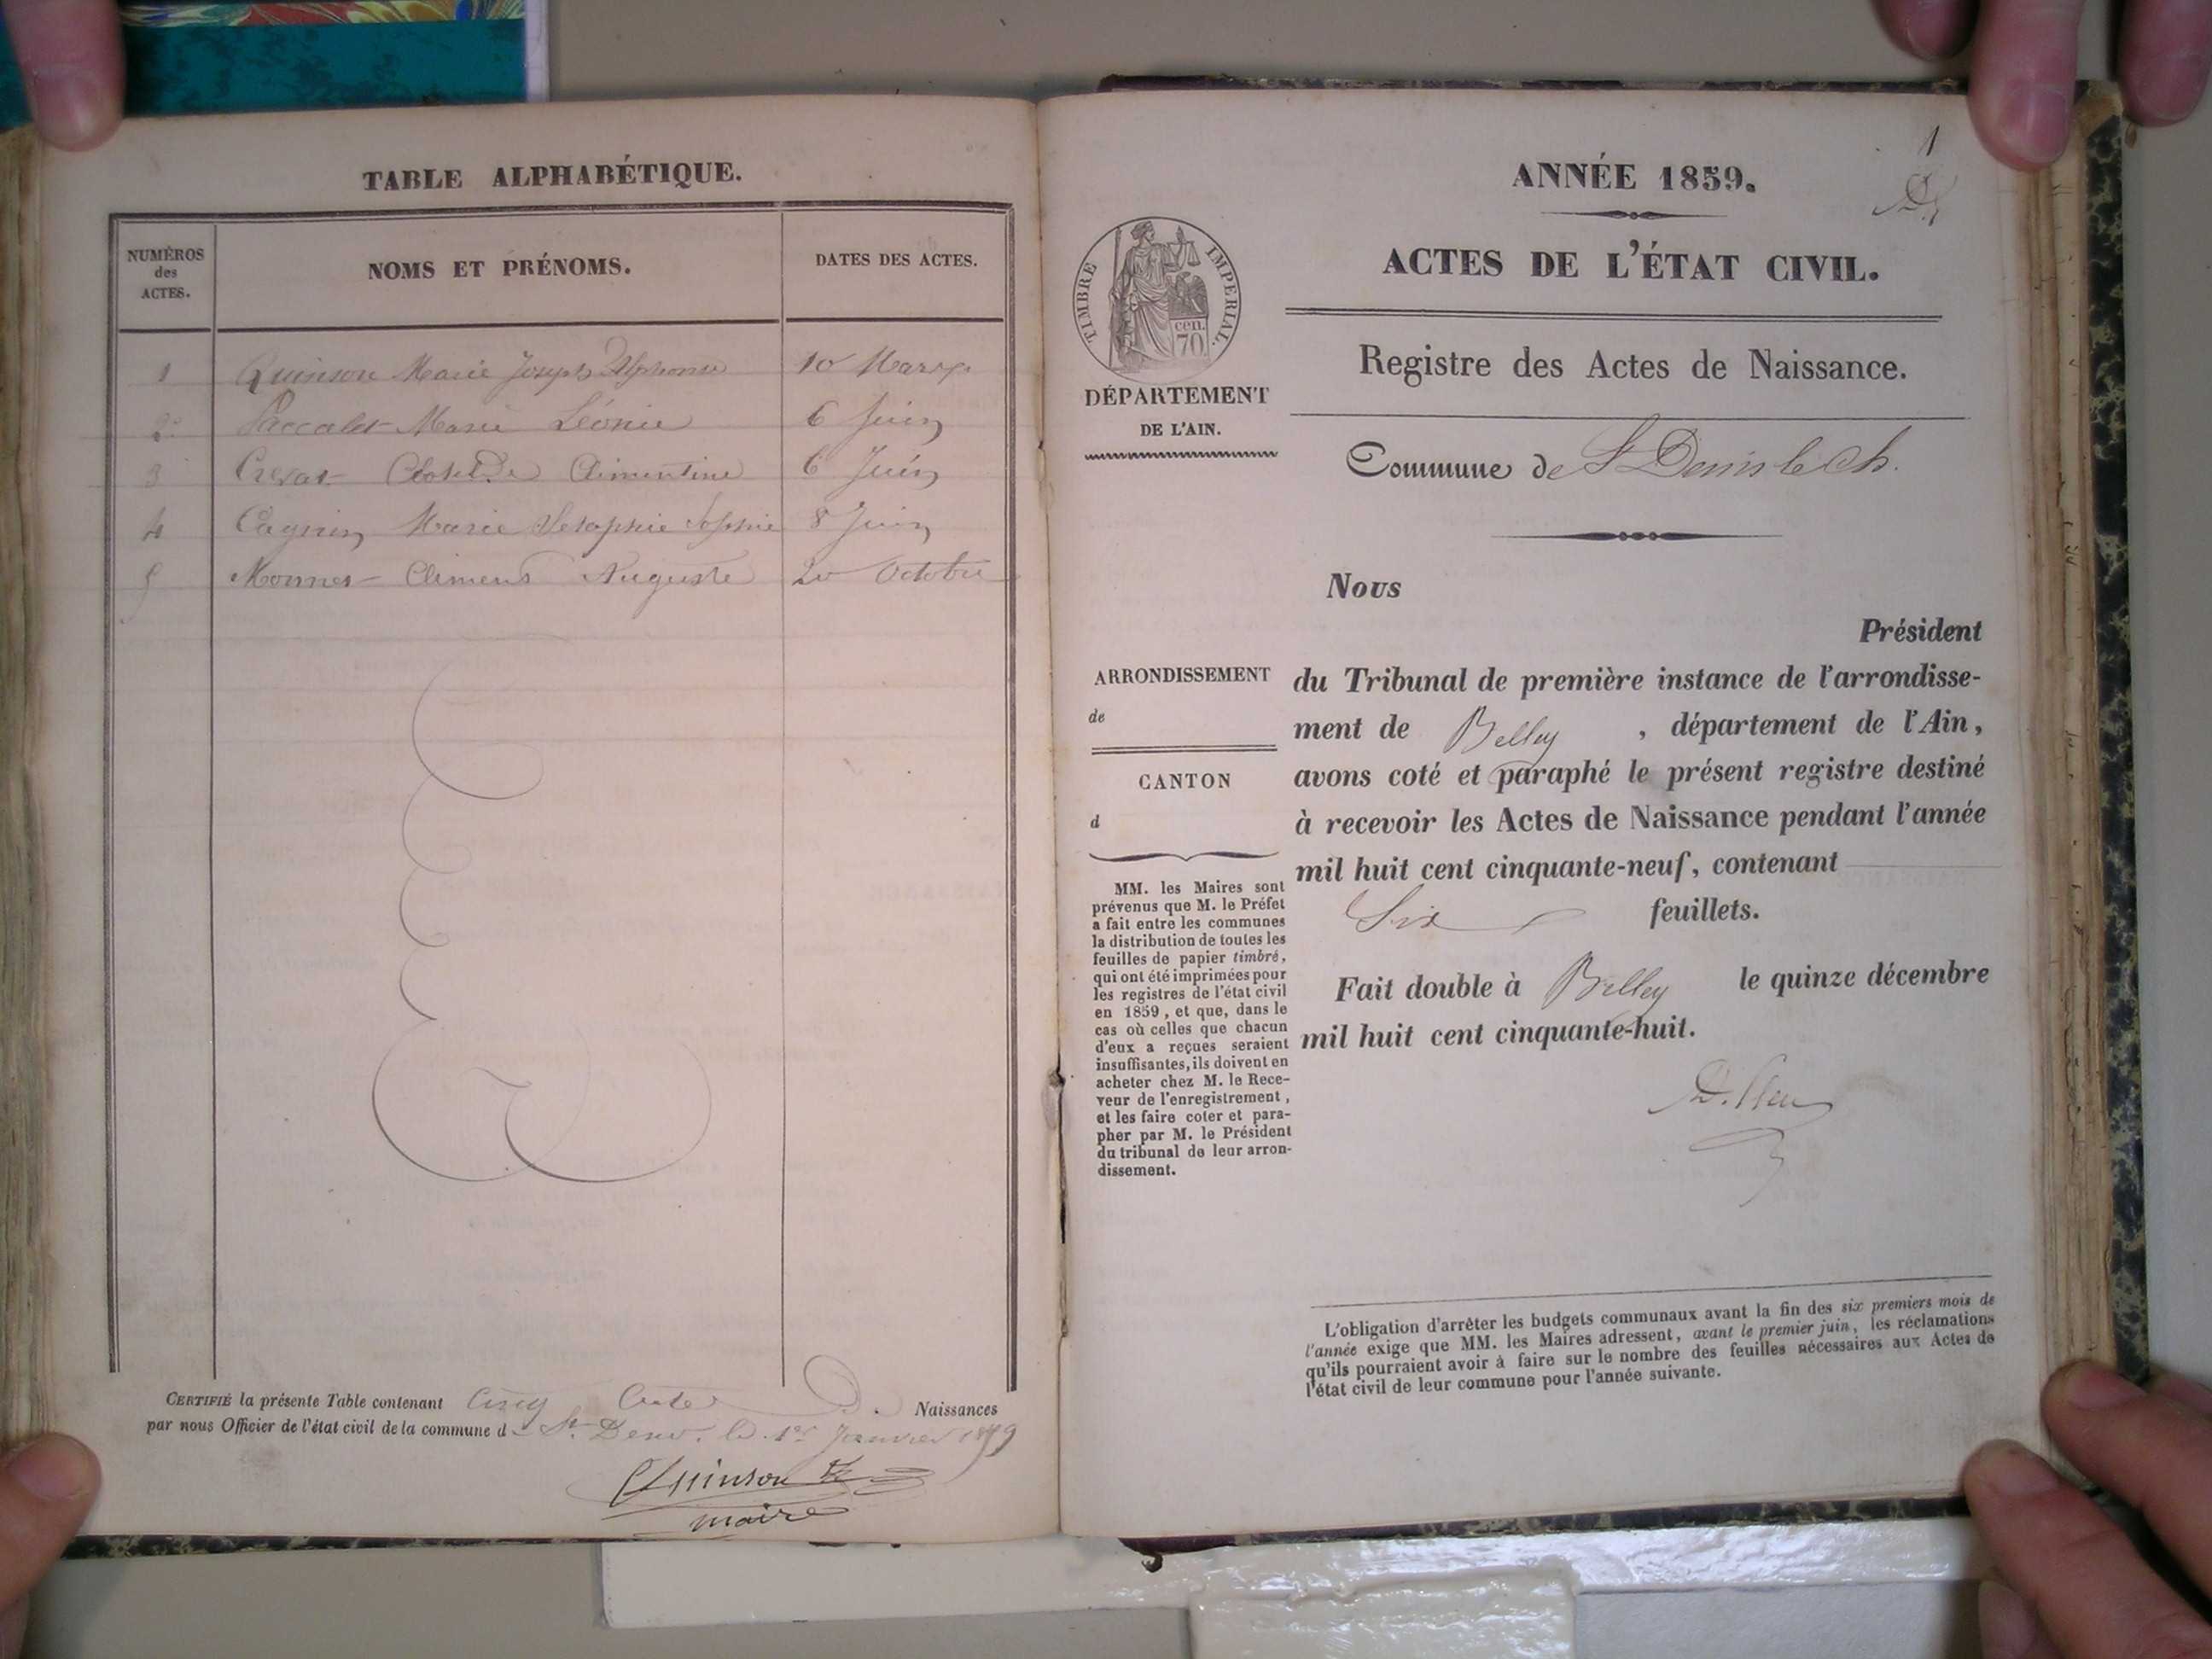 TABLE ALPHABÉTIQUE.
NUMÉROS des ACTES.
NOMS ET PRÉNOMS.
DATES DES ACTES.
1 Quinson Marie Joseph Alphonse 10 Mars
2 Paccalet Marie Léonie 6 Juin
3 Crevat Clotilde Clémentine 6 Juin
4 Cagnin Marie Séraphie Sophie 8 Juin
5 Monnet Clément Auguste 20 Octobre
CERTIFIÉ la présente Table contenant Cinq Actes D. Naissances
par nous Officier de l'état civil de la commune d St. Denis. le 1er Janvier 1859
Quinson
maire
1
ANNÉE 1859.
ACTES DE L'ÉTAT CIVIL.
TIMBRE IMPERIAL.
cen.
70
DÉPARTEMENT
DE L'AIN.
Registre des Actes de Naissance.
Commune de St Denis le Ch.
Nous
Président
ARRONDISSEMENT
de
CANTON
d
du Tribunal de première instance de l'arrondisse-
ment de Belley, département de l'Ain,
avons coté et paraphé le présent registre destiné
à recevoir les Actes de Naissance pendant l'année
mil huit cent cinquante-neuf, contenant
Six feuillets.
Fait double à Belley le quinze décembre
mil huit cent cinquante-huit.
MM. les Maires sont
prévenus que M. le Préfet
a fait entre les communes
la distribution de toutes les
feuilles de papier timbré,
qui ont été imprimées pour
les registres de l'état civil
en 1859, et que, dans le
cas où celles que chacun
d'eux a reçues seraient
insuffisantes, ils doivent en
acheter chez M. le Rece-
veur de l'enregistrement,
et les faire coter et para-
pher par M. le Président
du tribunal de leur arron-
dissement.
L'obligation d'arrêter les budgets communaux avant la fin des six premiers mois de
l'année exige que MM. les Maires adressent, avant le premier juin, les réclamations
qu'ils pourraient avoir à faire sur le nombre des feuilles nécessaires aux Actes de
l'état civil de leur commune pour l'année suivante.